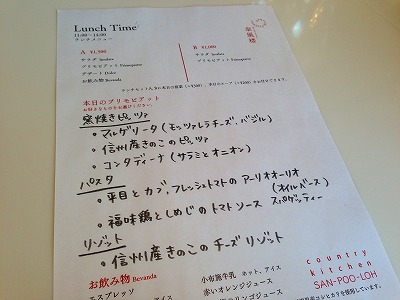 Lunch Time
11:00～14:00
ランチメニュー
A ¥1,500
サラダ Insalata
プリモピアット Primopiatto
デザート Dolce
お飲み物 Bevanda
B ¥1,000
サラダ Insalata
プリモピアット Primopiatto
本日のプリモピアット
お好きなものをお選びください。
窯焼きピッツァ
・マルゲリータ (モッツァレラチーズ・バジル)
・信州産きのこのピッツァ
・コンタディーナ (サラミとオニオン)
パスタ
・平目とカブ、フレッシュトマトのアーリオオーリオ
(オイルベース)
・福味鶏としめじのトマトソース スパゲッティー
リゾット
・信州産きのこのチーズリゾット
お飲み物 Bevanda
エスプレッソ
小布施牛乳 ホット、アイス
赤いオレンジジュース
country
kitchen
SAN-POO-LOH